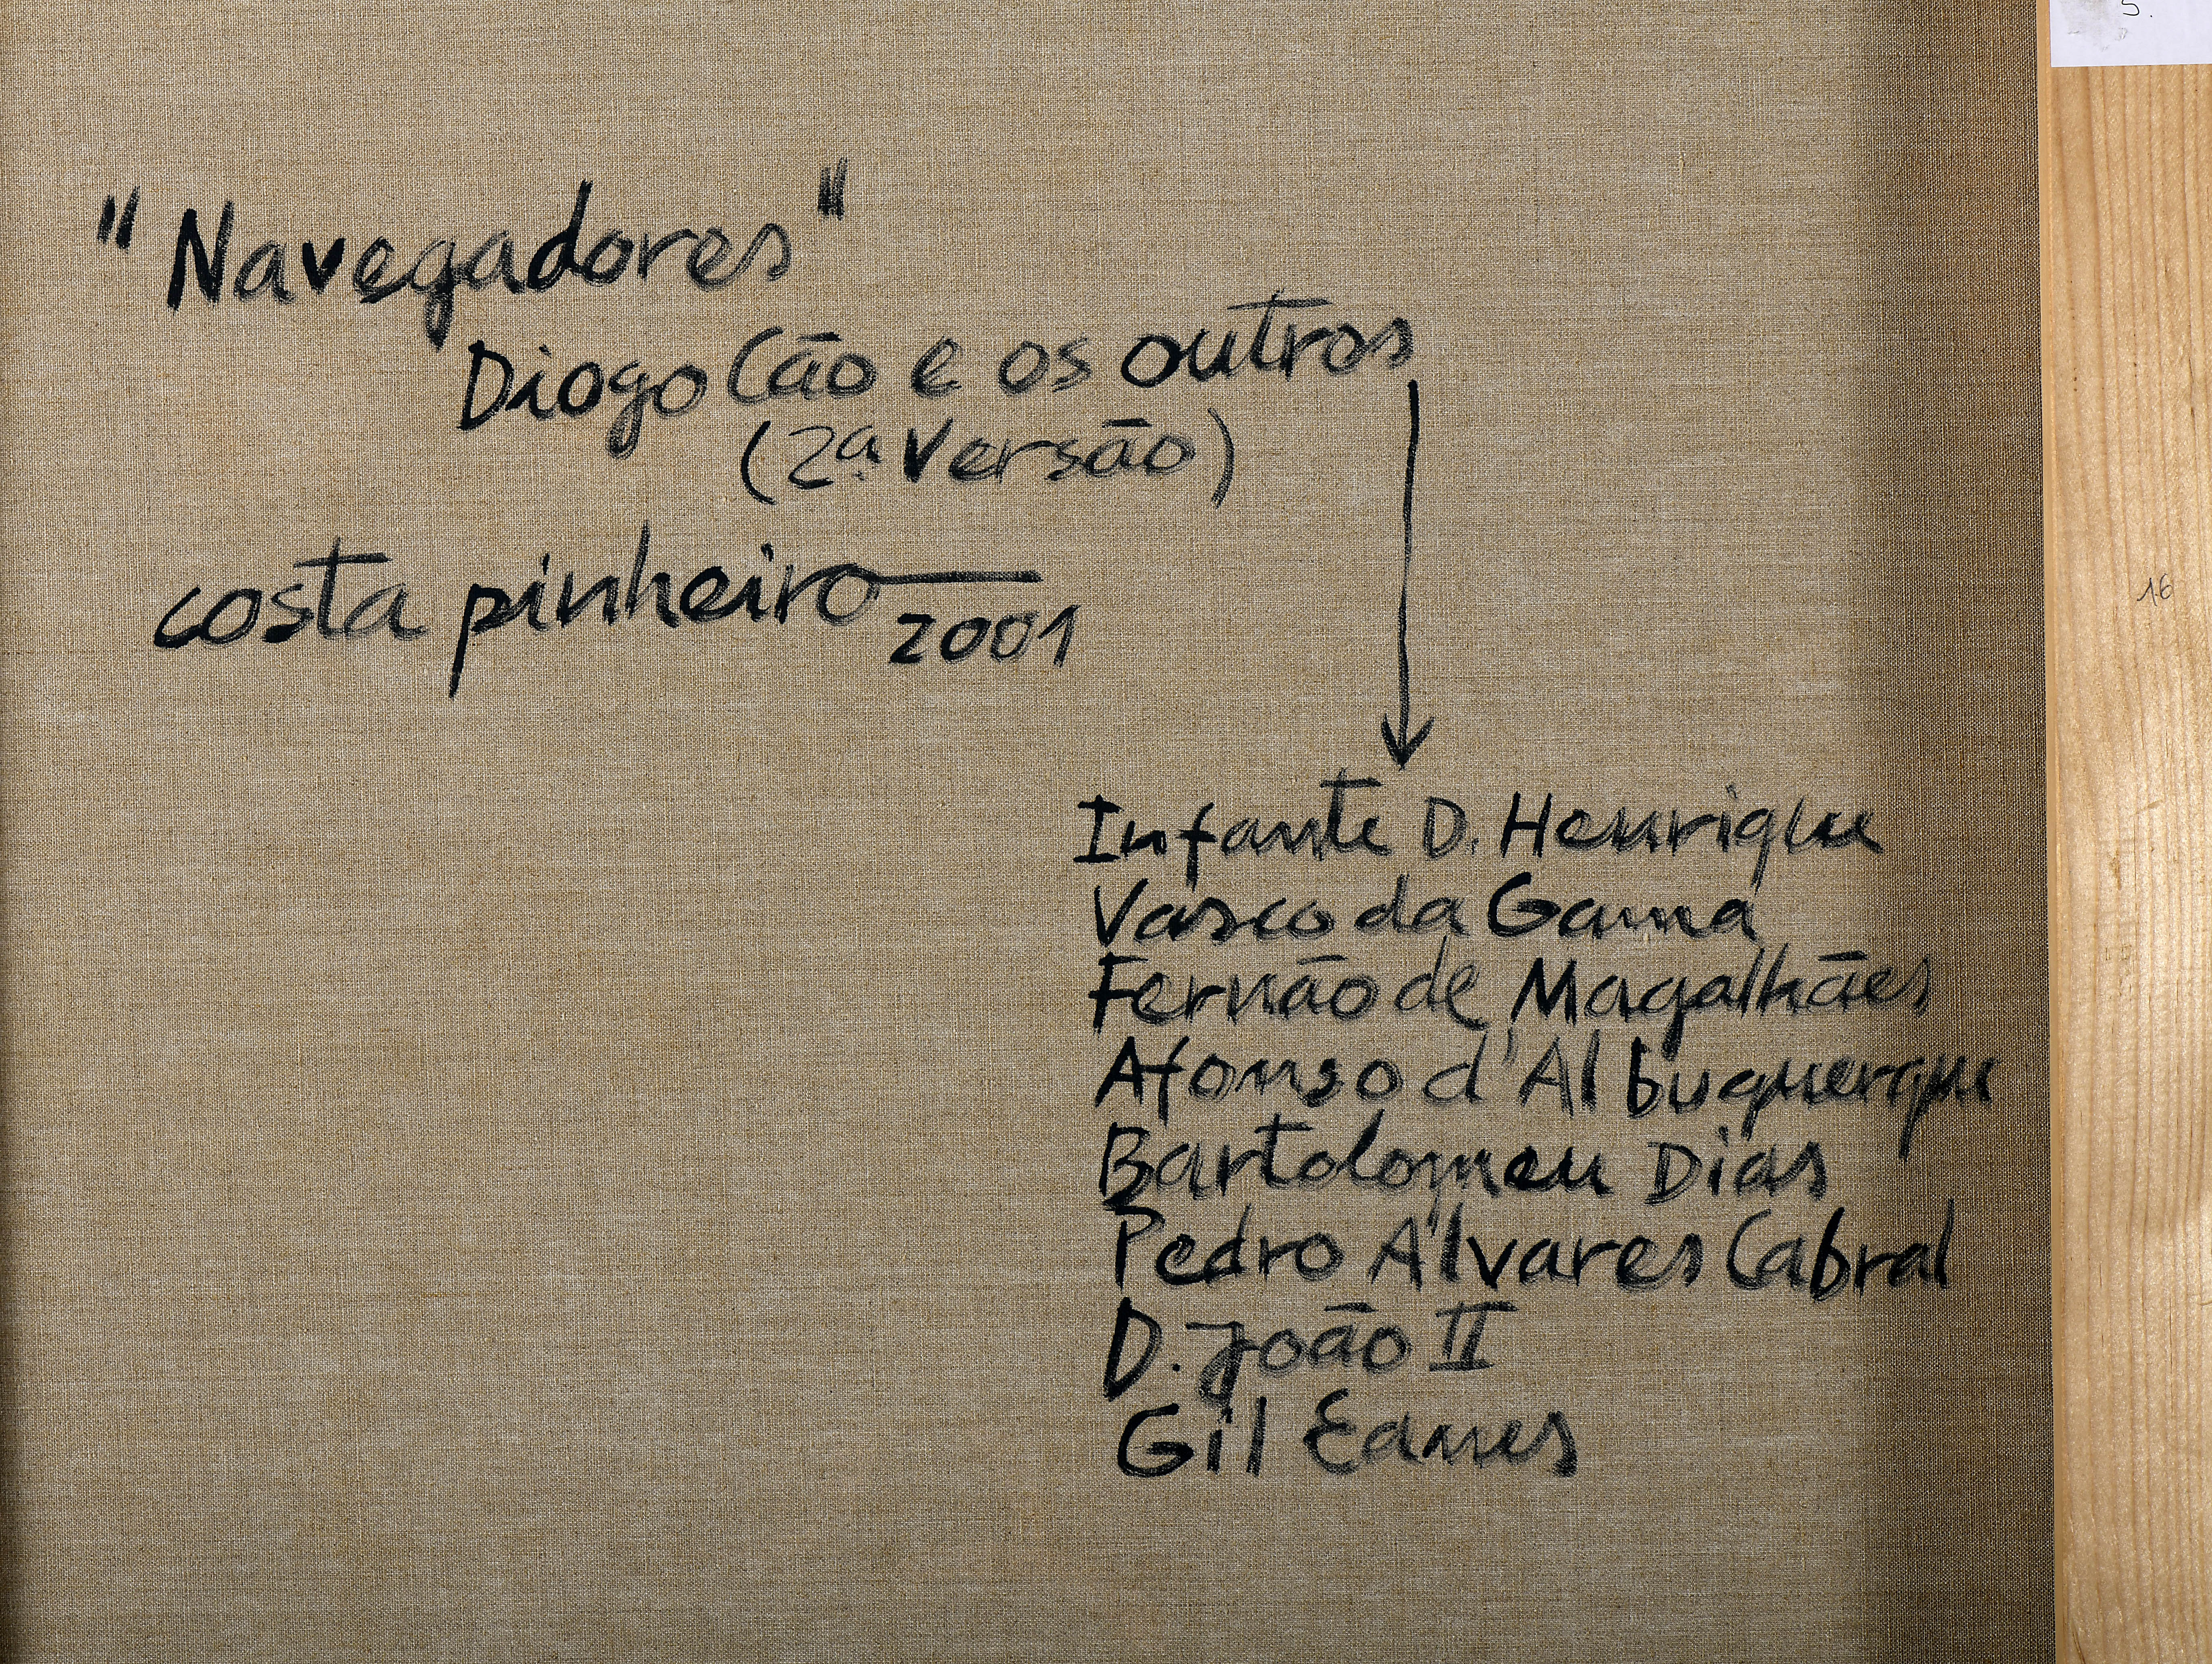 "Navegadores"
Diogo Cão e os outros
(2ª Versão)
costa pinheiro
2001
Infante D. Henrique
Vasco da Gama
Fernão de Magalhães
Afonso d'Albuquerque
Bartolomeu Dias
Pedro Álvares Cabral
D. João II
Gil Eanes
5.
16